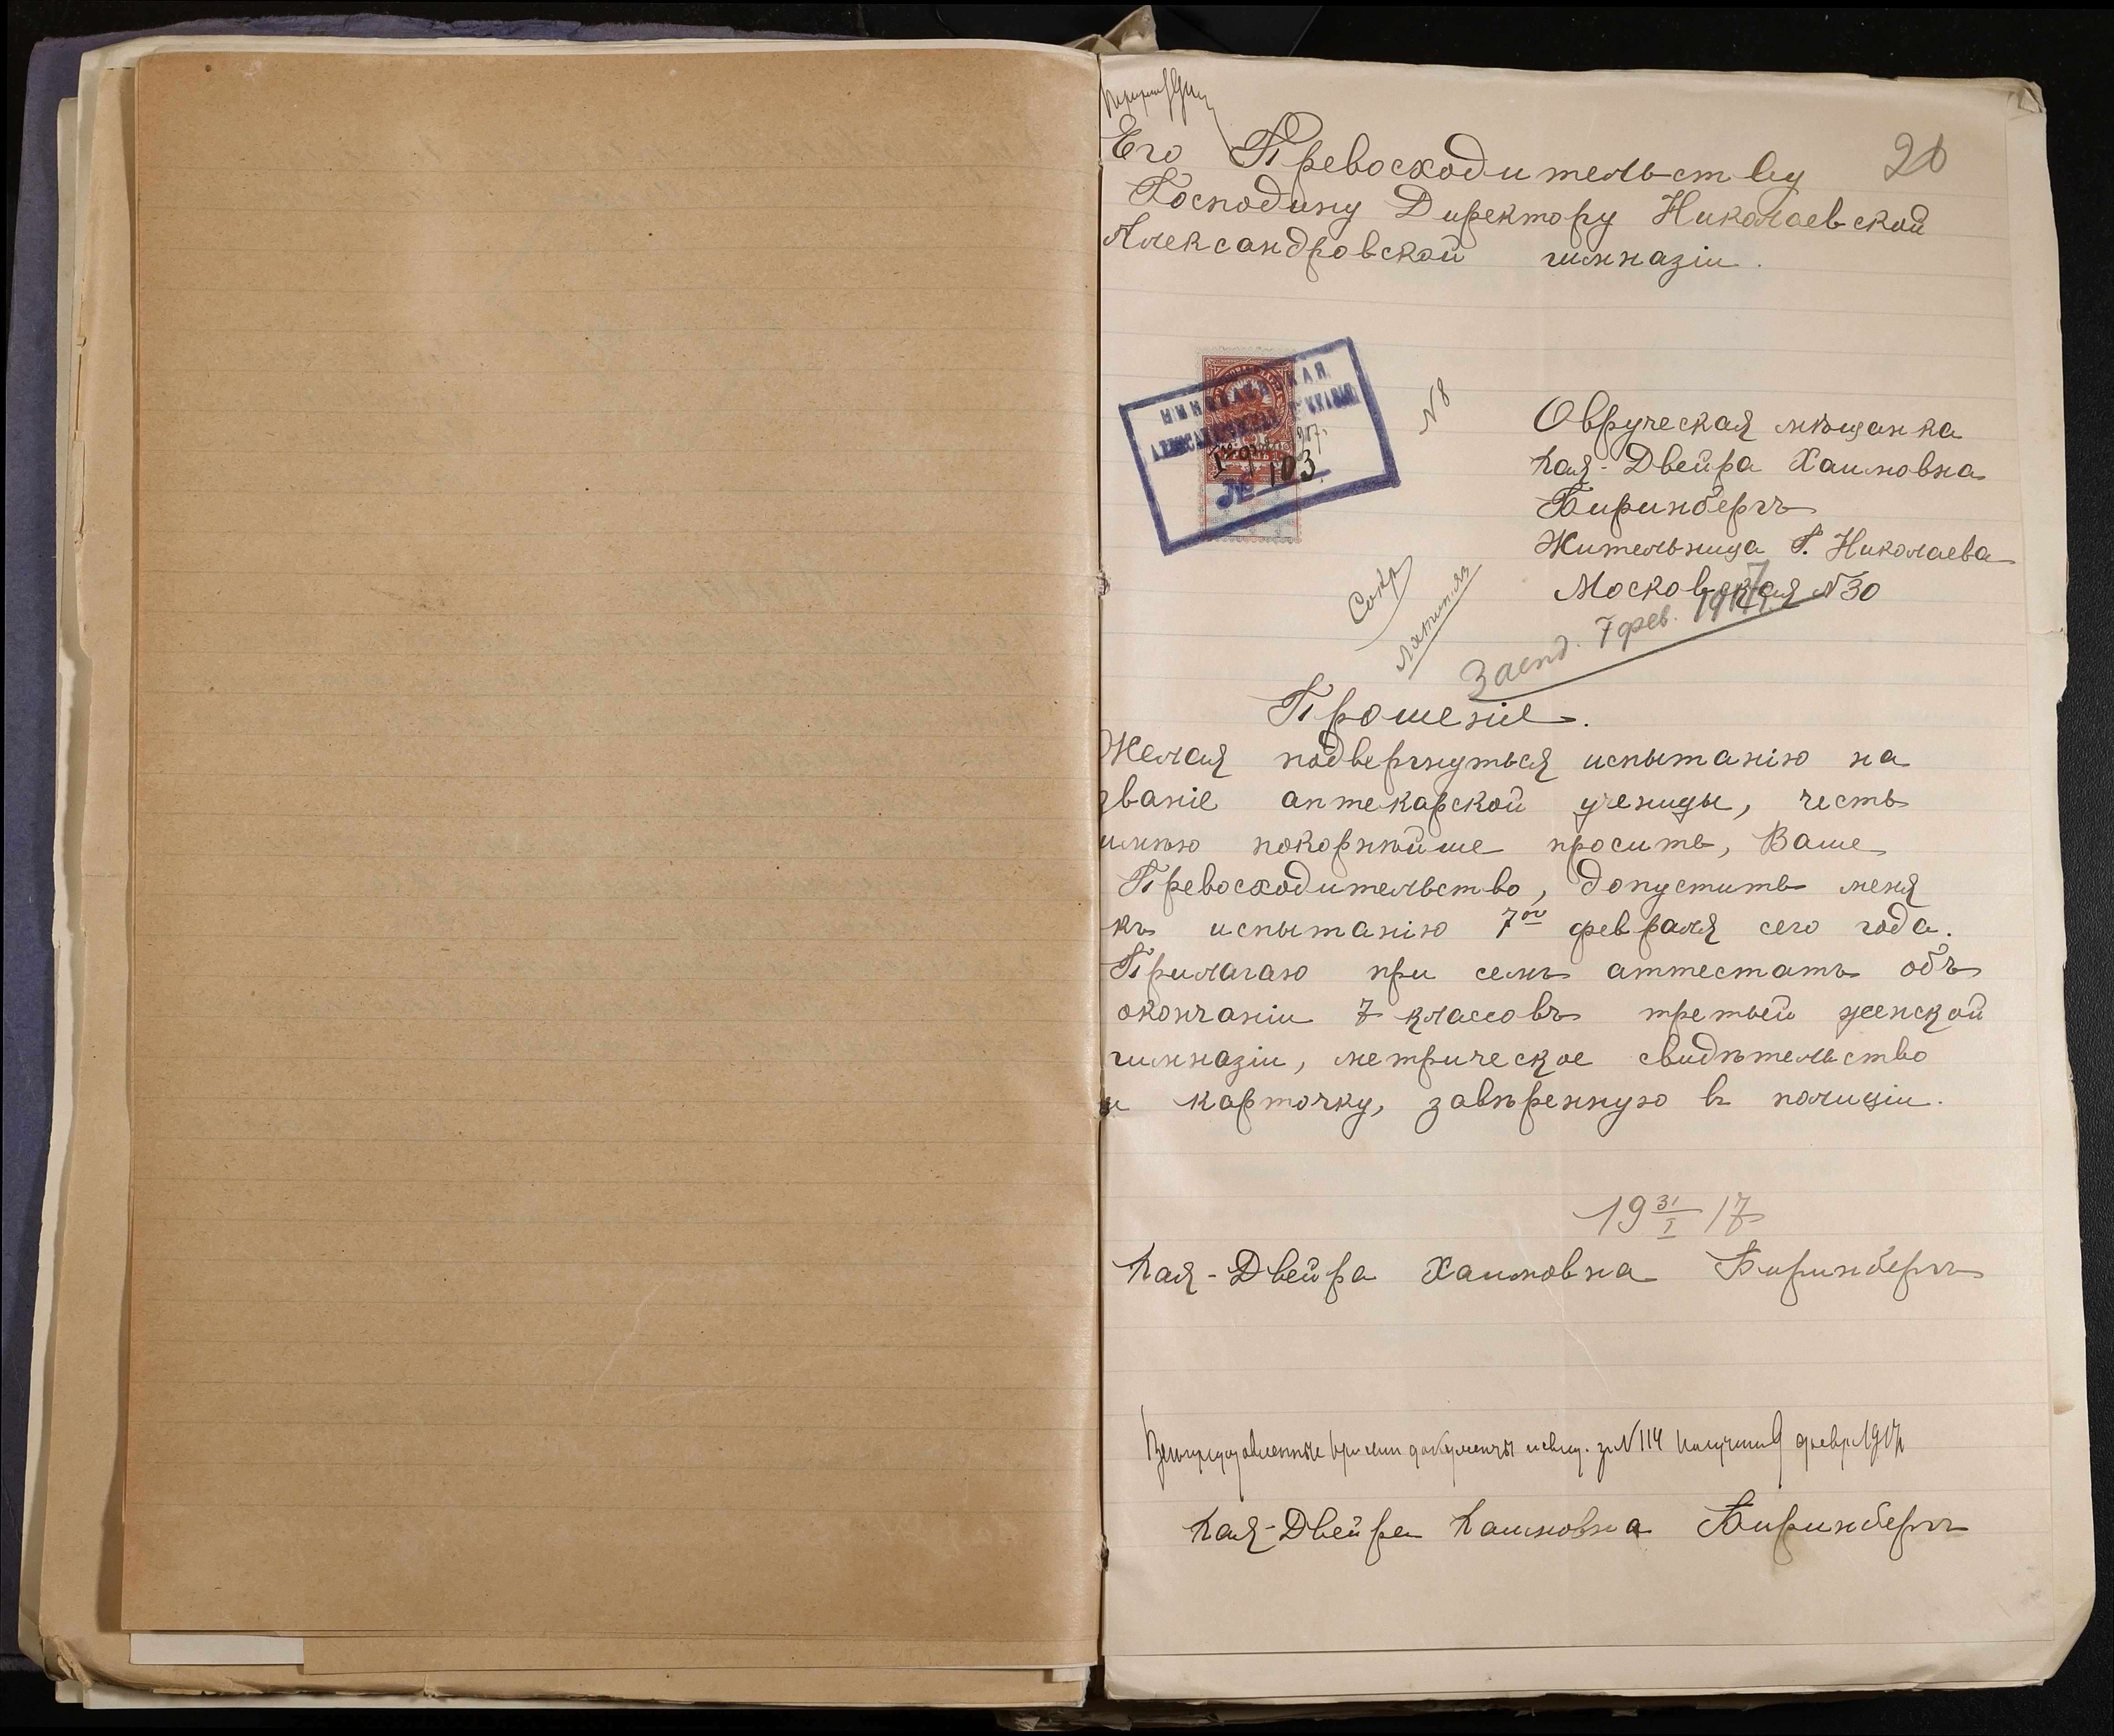 Его Превосходительству
20
Господину Директору Николаевской
Александровской гимназіи.
НИКОЛАЕВСКАЯ
АЛЕКСАНДРОВСКАЯ ГИМНАЗІЯ
№ 103
N 8
Овручская мѣщанка
Хая-Двейра Хаимовна
Биринбергъ
Жительница Г. Николаева
Московская N 30
Латинск
Засѣд. 7 фев. 1917
Прошеніе.
Желая подвергнуться испытанію на
званіе аптекарской ученицы, честь
имѣю покорнѣйше просить, Ваше
Превосходительство, допустить меня
къ испытанію 7го февраля сего года.
Прилагаю при семъ аттестатъ объ
окончаніи 7 классовъ третьей женской
гимназіи, метрическое свидѣтельство
и карточку, завѣренную въ полиціи.
19 31/I 17
Хая-Двейра Хаимовна Биринбергъ
документы и свид. за N 114 получила 9 февр. 1917
Хая-Двейра Хаимовна Биринбергъ